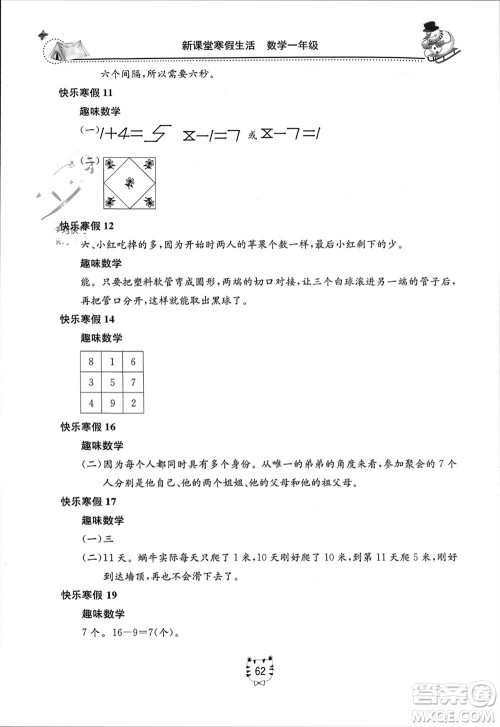 新课堂寒假生活 数学一年级
六个间隔,所以需要六秒。
快乐寒假 11
趣味数学
(一)1+4=5 8-1=7 或 8-7=1
(二)
快乐寒假 12
六、小红吃掉的多,因为开始时两人的苹果个数一样,小红剩下的少。
趣味数学
能。只要把塑料软管弯成圆形,两端的切口对接,让三个白球滚进另一端的管子后,
再把管口分开,就能取出黑球了。
快乐寒假 14
趣味数学
8 1 6
3 5 7
4 9 2
快乐寒假 16
趣味数学
(二)因为每个人都同时具有多个身份。从唯一的弟弟的角度来看,参加聚会的 7
个人分别是他自己、他的两个姐姐、他的父母和他的祖父母。
快乐寒假 17
趣味数学
(一)三
(二)11 天。蜗牛实际每天只爬了 1 米,10 天刚好爬了 10 米,第 11 天爬 3 米,刚好
到达墙顶,就不会再下滑了。
快乐寒假 19
趣味数学
7 个。16-9=7(个)。
62
答案圈
MXQE.COM